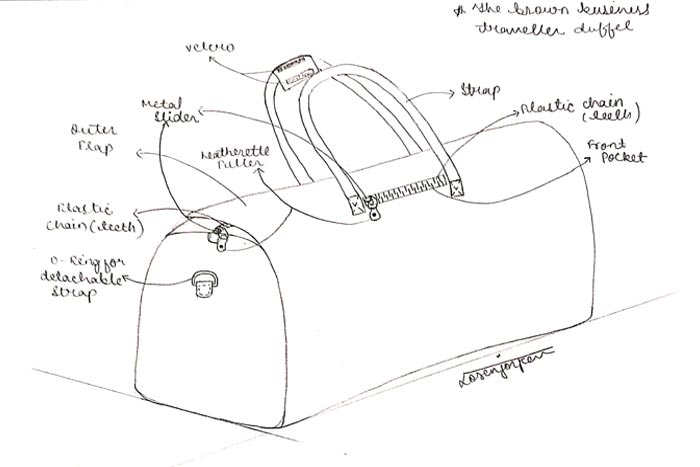 * The brown business
traveller duffel
velcro
Metal
Slider
Strap
Plastic chain
(teeth)
Outer
Flap
Leatherette
Puller
Front
Pocket
Plastic
chain (teeth)
D-Ring for
detachable
Strap